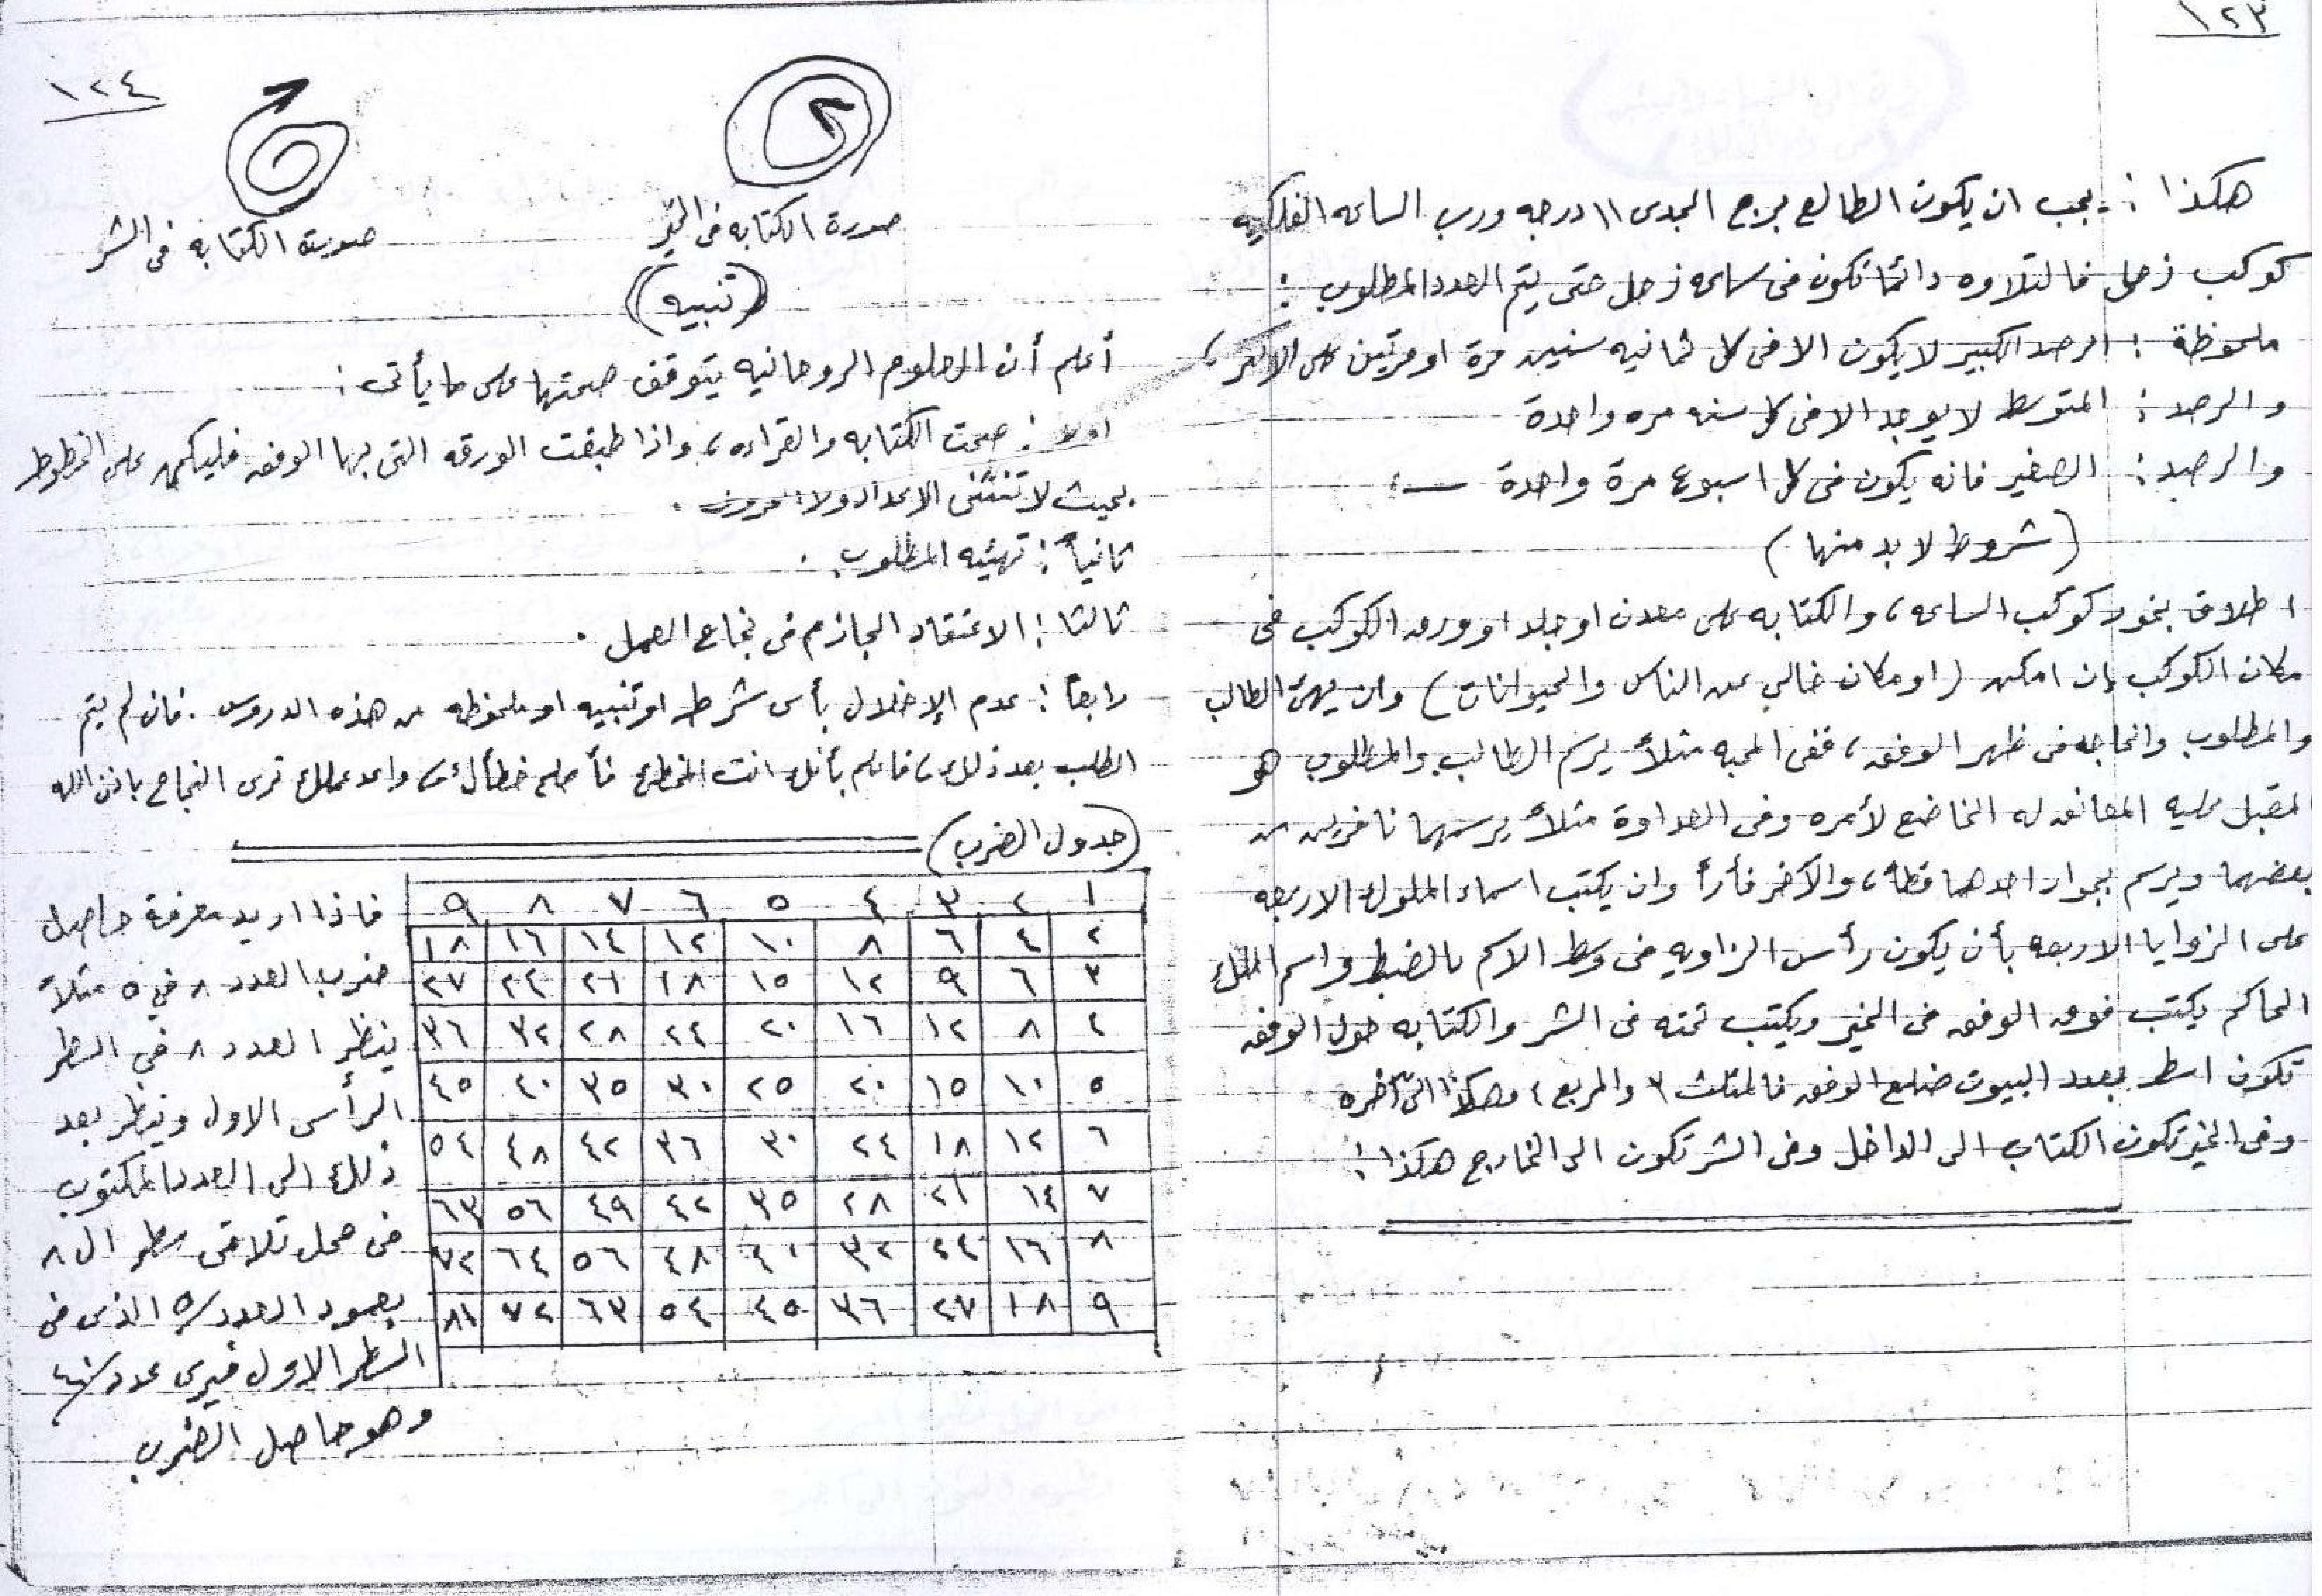 ١٢٣
هكذا :. يجب ان يكون الطالع برج الجدى ١١ درجه ورب الساعه الفلكيه
كوكب زحل فالتلاوه دائمًا تكون فى ساعه زحل حتى يتم العدد المطلوب :
ملحوظة : الرصد الكبير لا يكون الا فى كل ثمانيه سنين مرة او مرتين على الاكثر ،
والرصد : المتوسط لا يوجد الا فى كل سنه مره واحدة
والرصد : الصغير فانه يكون فى كل اسبوع مرة واحدة
( شروط لا بد منها )
اطلاق بخور كوكب الساعه ، والكتابه على معدن او جلد او ورق الكوكب فى
مكان الكوكب إن امكن ( او مكان خالي عن الناس والحيوانات ) وان يهئ الطالب
والمطلوب والحاجه فى ظهر الوفق ، ففى المحبه مثلاً يرسم الطالب والمطلوب هو
المقبل عليه المعانق له الخاضع لأمره وفى العداوة مثلاً يرسمهما نافرين من
بعضهما ويرسم بجوار احدهما قطاً ، والآخر فأراً وان يكتب اسماء الملوك الاربعه
على الزوايا الاربعه بأن يكون رأس الزاويه فى وسط الاسم بالضبط واسم الملك
الحاكم يكتب فوق الوفق فى الخير ويكتب تحته فى الشر والكتابه حول الوفق
تكون اسطر بعدد البيوت ضلع الوفق فالمثلث ٣ والمربع ٤ وهكذا الى آخره
وفى الخير تكون الكتاب الى الداخل وفى الشر تكون الى الخارج هكذا :
١٢٤
صورة الكتابه فى الخير
صورة الكتابه فى الشر
(( تنبيه ))
أعلم أن العلوم الروحانيه يتوقف صحتها على ما يأتى :
اولا : صحت الكتابه والقراءه ، واذا طبقت الورقه التى بها الوفق فليكن على الخطوط
بحيث لا تنثنى الاعداد ولا الحروف .
ثانياً : تهيئه المطلوب .
ثالثا : الاعتقاد الجازم فى نجاح العمل .
رابعاً : عدم الإخلال بأى شرط او تنبيه او ملحوظه من هذه الدروس . فان لم يتم
الطلب بعد ذلك ، فاعلم بأنك انت المخطئ فأصلح خطأك ، واعد عملك ترى النجاح باذن الله
( جدول الضرب )
١ ٢ ٣ ٤ ٥ ٦ ٧ ٨ ٩
٢ ٤ ٦ ٨ ١٠ ١٢ ١٤ ١٦ ١٨
٣ ٦ ٩ ١٢ ١٥ ١٨ ٢١ ٢٤ ٢٧
٤ ٨ ١٢ ١٦ ٢٠ ٢٤ ٢٨ ٣٢ ٣٦
٥ ١٠ ١٥ ٢٠ ٢٥ ٣٠ ٣٥ ٤٠ ٤٥
٦ ١٢ ١٨ ٢٤ ٣٠ ٣٦ ٤٢ ٤٨ ٥٤
٧ ١٤ ٢١ ٢٨ ٣٥ ٤٢ ٤٩ ٥٦ ٦٣
٨ ١٦ ٢٤ ٣٢ ٤٠ ٤٨ ٥٦ ٦٤ ٧٢
٩ ١٨ ٢٧ ٣٦ ٤٥ ٥٤ ٦٣ ٧٢ ٨١
فاذا اريد معرفة حاصل
ضرب العدد ٨ في ٥ مثلاً
ينظر العدد ٨ في السطر
الرأسى الاول وينظر بعد
ذلك الى العدد المكتوب
فى محل تلاقى سطر ال ٨
بعمود العدد / ٥ الذى فى
السطر الاول فيرى عدد / ٤٠
وهو حاصل الضرب